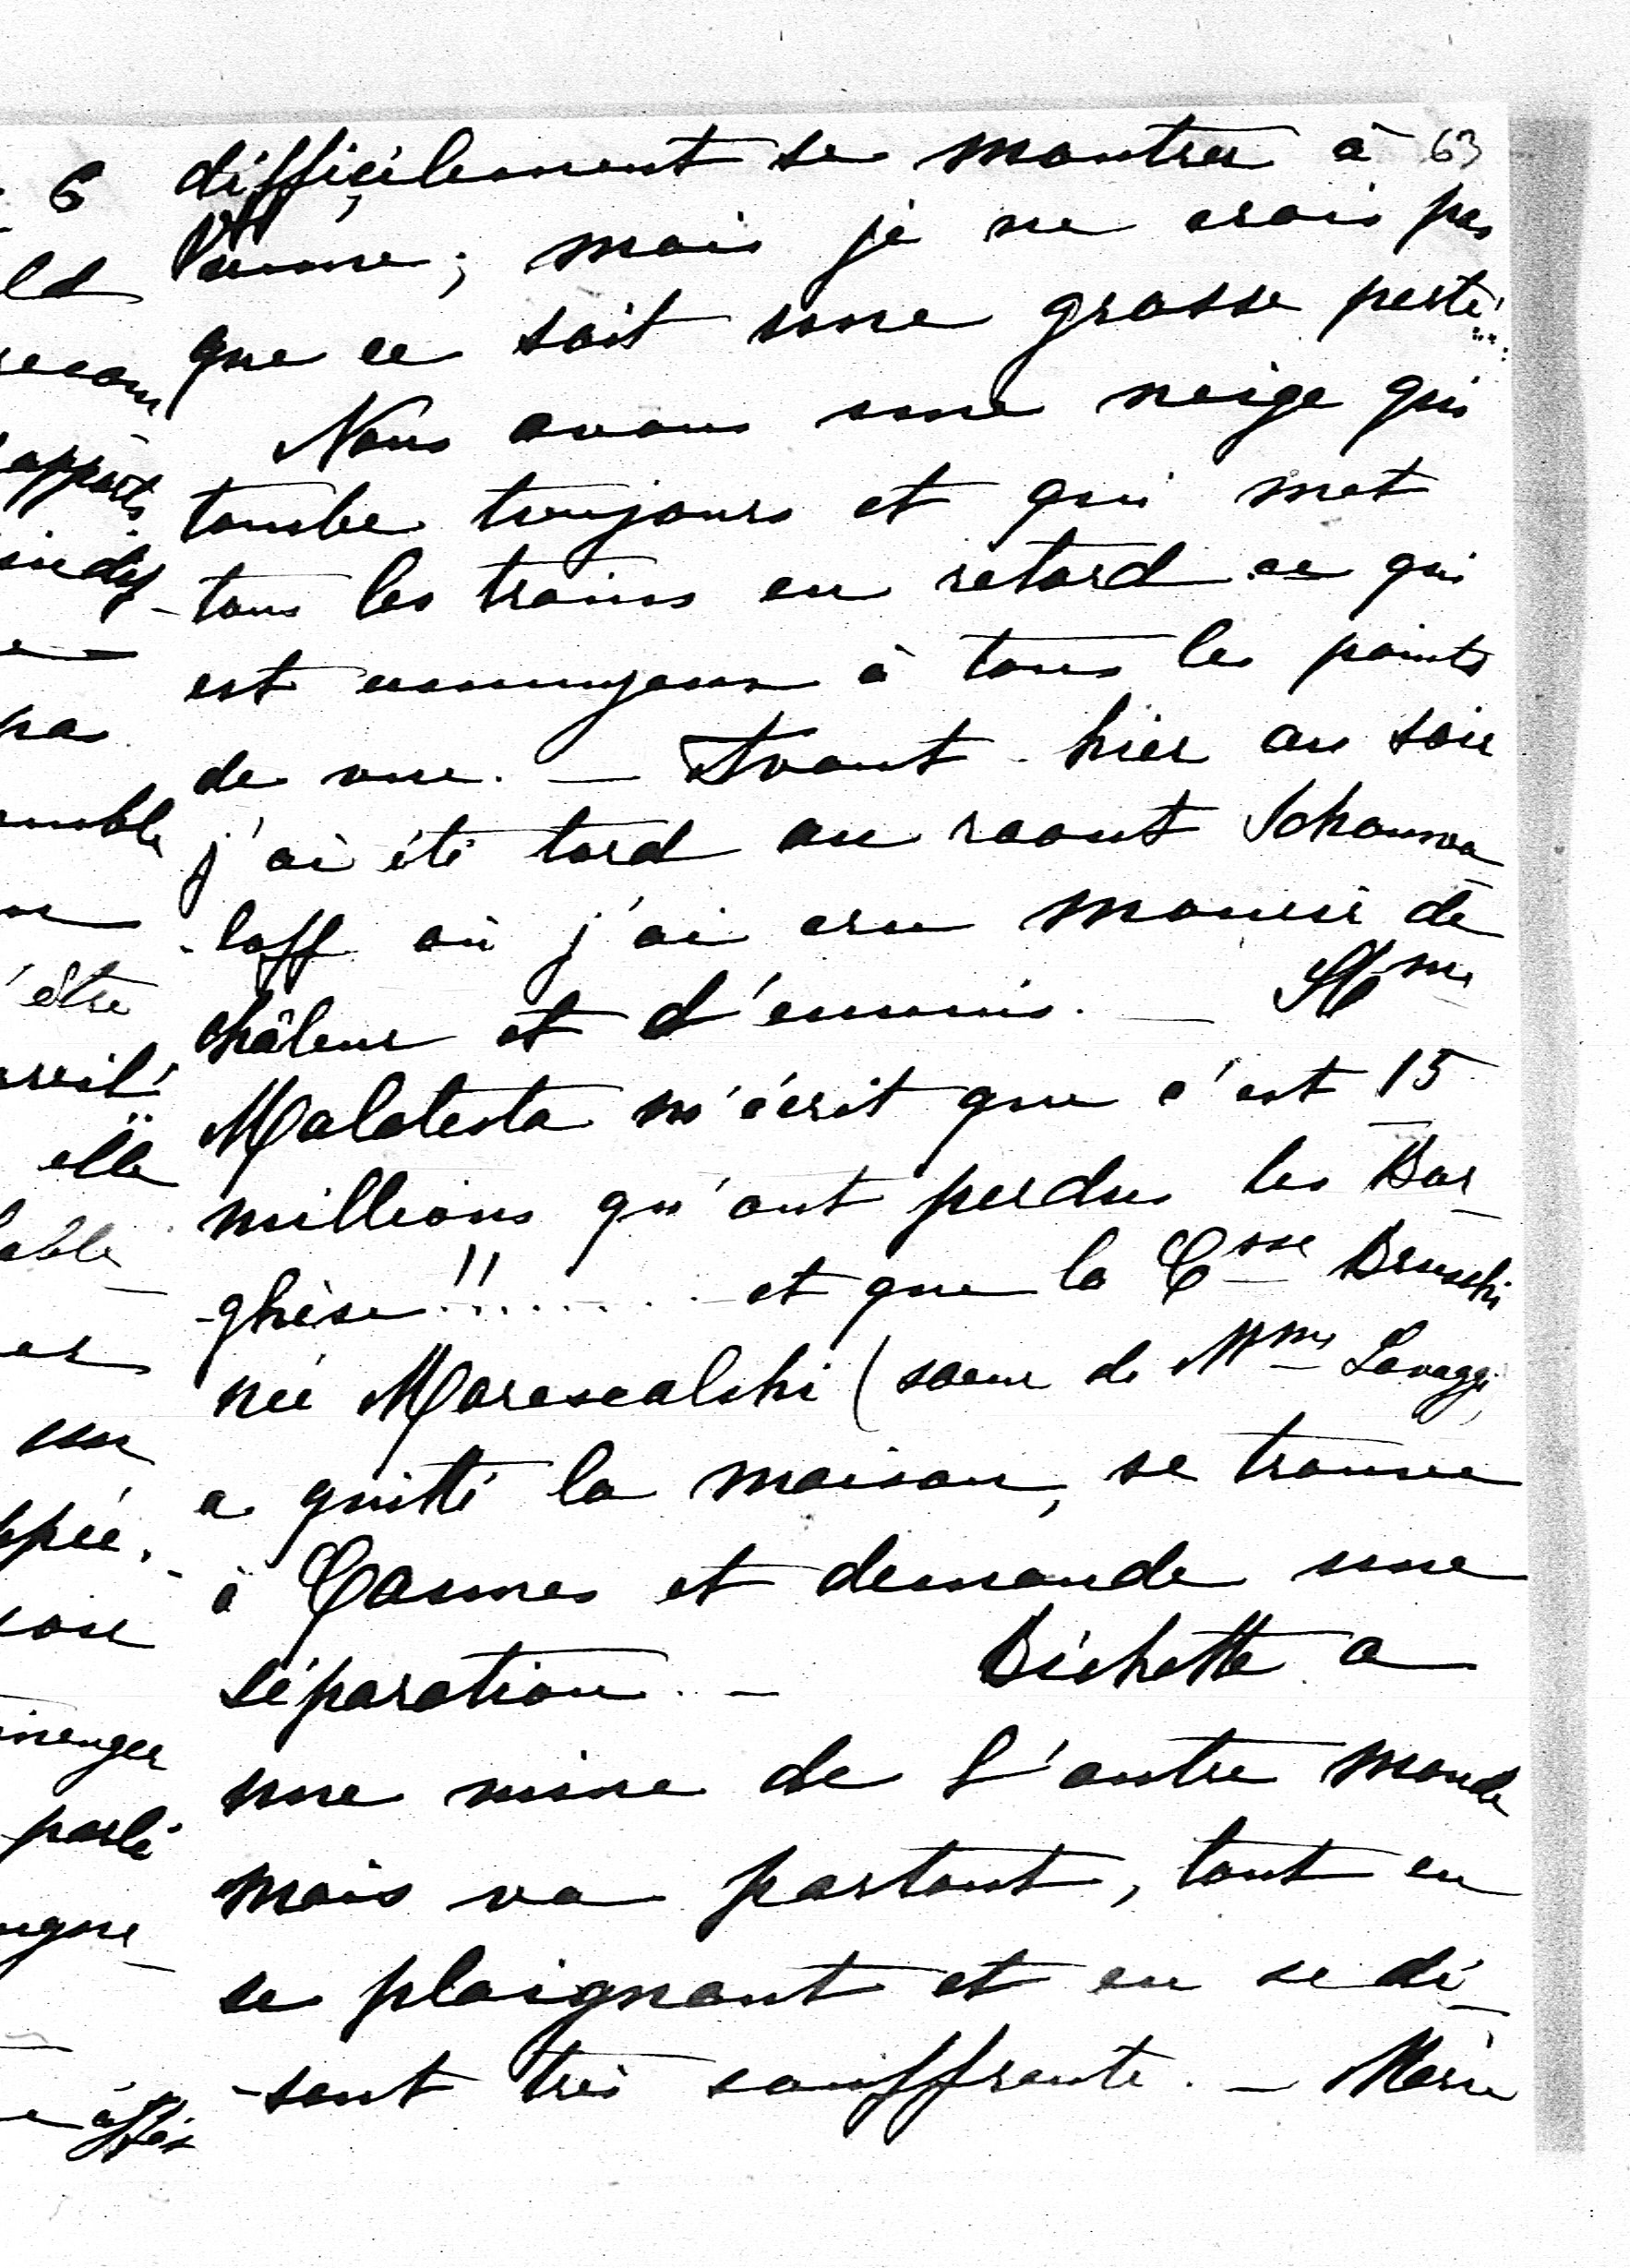 difficilement se montrer à 63
Vienne; mais je ne crois pas
que ce soit une grosse perte!...
Nous avons une neige qui
tombe toujours et qui met
tous les trains en retard ce qui
est ennuyeux à tous les points
de vue. — Avant-hier au soir
j'ai été tard au raout Schouwa
-loff où j'ai cru mourir de
châleur et d'ennuis. — Mme
Malatesta m'écrit que c'est 15
millions qu'ont perdus les Bor-
-ghèse!!........ et que la Csse Bruschi
née Marescalchi (soeur de Mme Lavaggi
a quitté la maison, se trouve
à Cannes et demande une
séparation. — Bichette a
une mine de l'autre monde
mais va partout, tout en
se plaignant et en se di-
-sant très souffrante. — Marie